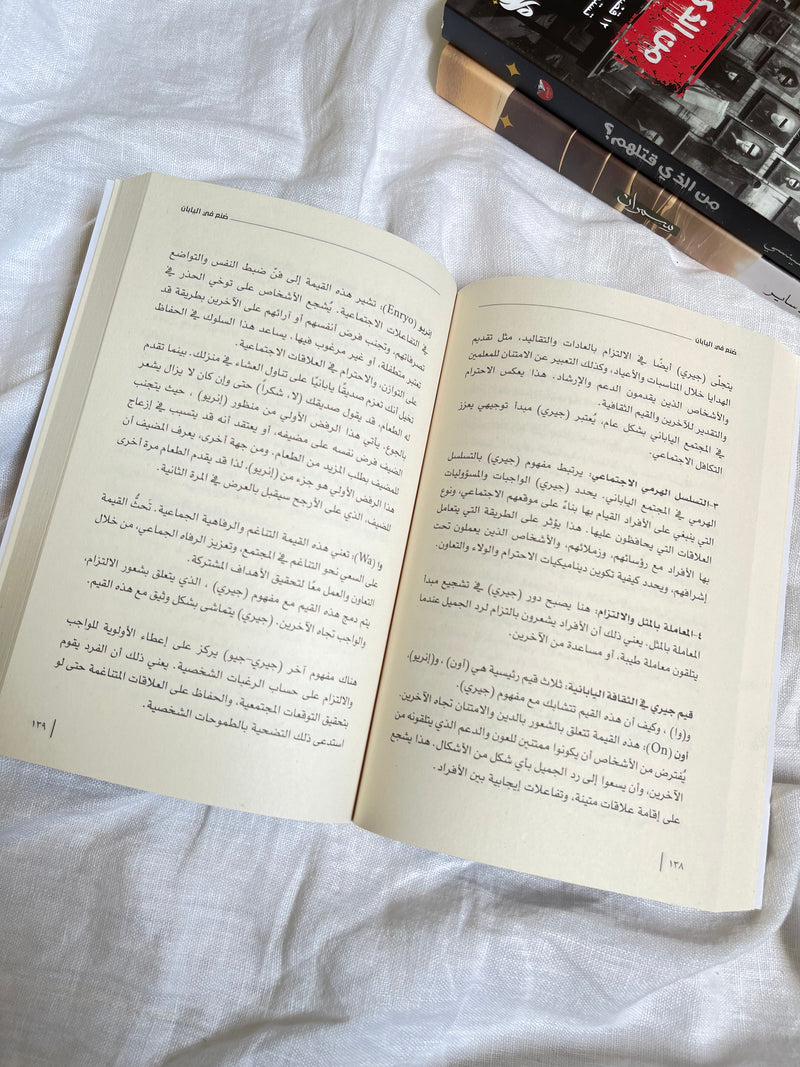 من الذي قتلهم؟
سمران
ساير
صنع في اليابان
يتجلّى (جيري) أيضًا في الالتزام بالعادات والتقاليد، مثل تقديم
الهدايا خلال المناسبات والأعياد، وكذلك التعبير عن الامتنان للمعلمين
والأشخاص الذين يقدمون الدعم والإرشاد. هذا يعكس الاحترام
والتقدير للآخرين والقيم الثقافية.
في المجتمع الياباني بشكل عام، يُعتبر (جيري) مبدأ توجيهي يعزز
التكافل الاجتماعي.
٣-التسلسل الهرمي الاجتماعي: يرتبط مفهوم (جيري) بالتسلسل
الهرمي في المجتمع الياباني. يحدد (جيري) الواجبات والمسؤوليات
التي ينبغي على الأفراد القيام بها بناءً على موقعهم الاجتماعي، ونوع
العلاقات التي يحافظون عليها. هذا يؤثر على الطريقة التي يتعامل
بها الأفراد مع رؤسائهم، وزملائهم، والأشخاص الذين يعملون تحت
إشرافهم، ويحدد كيفية تكوين ديناميكيات الاحترام والولاء والتعاون.
٤-المعاملة بالمثل والالتزام: هنا يصبح دور (جيري) في تشجيع مبدأ
المعاملة بالمثل. يعني ذلك أن الأفراد يشعرون بالتزام لرد الجميل عندما
يتلقون معاملة طيبة، أو مساعدة من الآخرين.
قيم جيري في الثقافة اليابانية: ثلاث قيم رئيسية هي (أون) ، و(إنريو)،
و(وا) ، وكيف أن هذه القيم تتشابك مع مفهوم (جيري).
أون (On): هذه القيمة تتعلق بالشعور بالدين والامتنان تجاه الآخرين.
يُفترض من الأشخاص أن يكونوا ممتنين للعون والدعم الذي يتلقونه من
الآخرين، وأن يسعوا إلى رد الجميل بأي شكل من الأشكال. هذا يشجع
على إقامة علاقات متينة، وتفاعلات إيجابية بين الأفراد.
١٣٨
صنع في اليابان
إنريو (Enryo): تشير هذه القيمة إلى فنّ ضبط النفس والتواضع
في التفاعلات الاجتماعية. يُشجع الأشخاص على توخي الحذر في
تصرفاتهم، وتجنب فرض أنفسهم أو آرائهم على الآخرين بطريقة قد
تعتبر متطفلة، أو غير مرغوب فيها. يساعد هذا السلوك في الحفاظ
على التوازن، والاحترام في العلاقات الاجتماعية.
تخيل أنك تعزم صديقًا يابانيًا على تناول العشاء في منزلك. بينما تقدم
له الطعام، قد يقول صديقك (لا، شكراً) حتى وإن كان لا يزال يشعر
بالجوع. يأتي هذا الرفض الأولي من منظور (إنريو) ، حيث يتجنب
الضيف فرض نفسه على مضيفه، أو يعتقد أنه قد يتسبب في إزعاج
للمضيف بطلب المزيد من الطعام. ومن جهة أخرى، يعرف المضيف أن
هذا الرفض الأولي هو جزء من (إنريو)، لذا قد يقدم الطعام مرة أخرى
للضيف، الذي على الأرجح سيقبل بالعرض في المرة الثانية.
وا (Wa): تعني هذه القيمة التناغم والرفاهية الجماعية. تَحثُّ القيمة
على السعي نحو التناغم في المجتمع، وتعزيز الرفاه الجماعي، من خلال
التعاون والعمل معًا لتحقيق الأهداف المشتركة.
يتم دمج هذه القيم مع مفهوم (جيري) ، الذي يتعلق بشعور الالتزام،
والواجب تجاه الآخرين. (جيري) يتماشى بشكل وثيق مع هذه القيم.
هناك مفهوم آخر (جيري-جيو) يركز على إعطاء الأولوية للواجب
والالتزام على حساب الرغبات الشخصية. يعني ذلك أن الفرد يقوم
بتحقيق التوقعات المجتمعية، والحفاظ على العلاقات المتناغمة حتى لو
استدعى ذلك التضحية بالطموحات الشخصية.
١٣٩